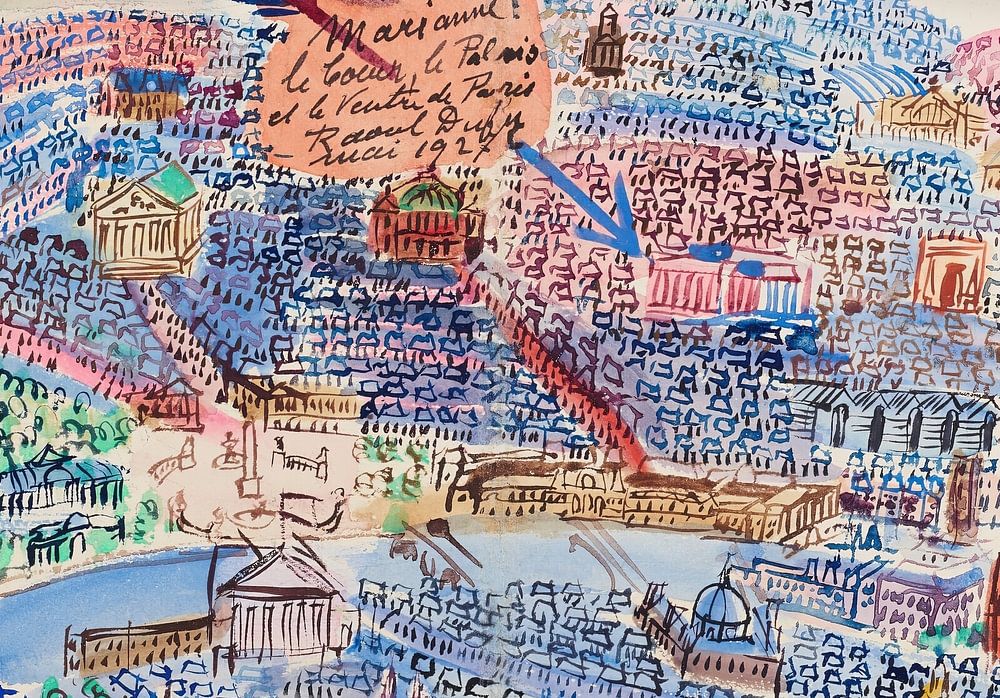 Marianne!
le Coeur, le Palais
et le Ventre de Paris
Raoul Dufy
- mai 1927